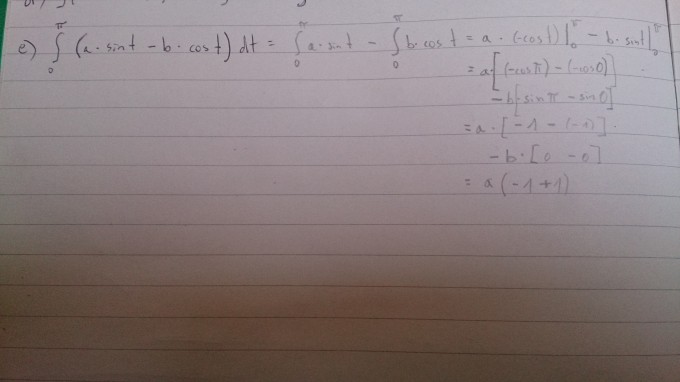 e) ∫₀^π (a · sin t − b · cos t) dt = ∫₀^π a · sin t − ∫₀^π b · cos t = a · (-cos t) |₀^π − b · sin t |₀^π
= a · [(-cos π) − (-cos 0)]
− b [sin π − sin 0]
= a · [-1 − (-1)] ·
− b · [0 − 0]
= a (-1 + 1)